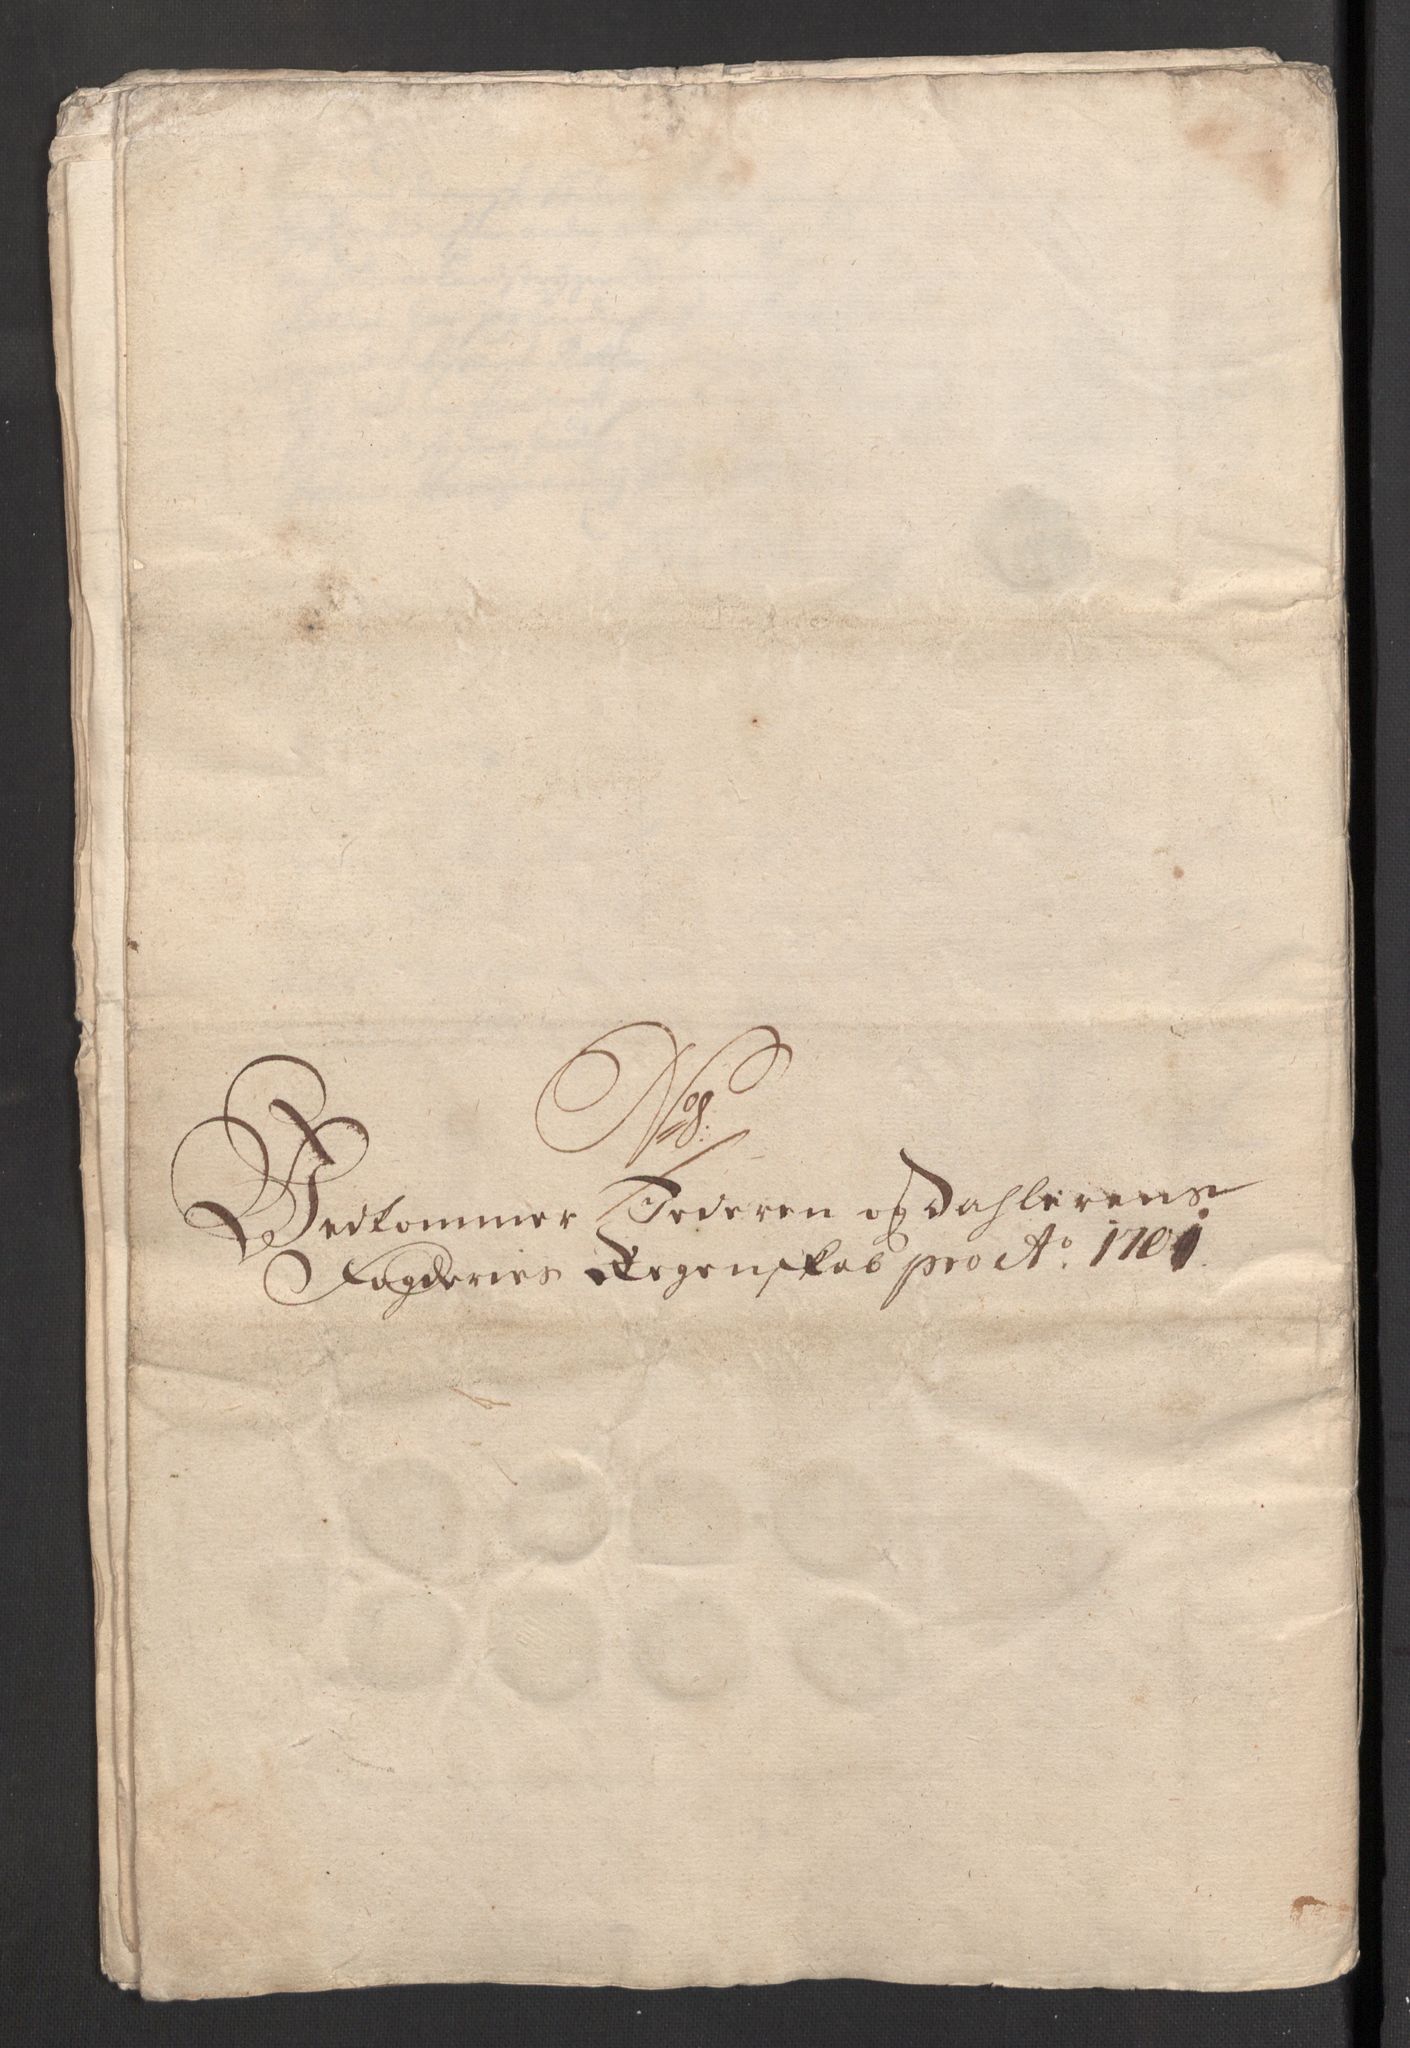 No 8:
Vedkommer Jederen og Dahlerens
Fogderies Regenskab pro Ao. 1701.